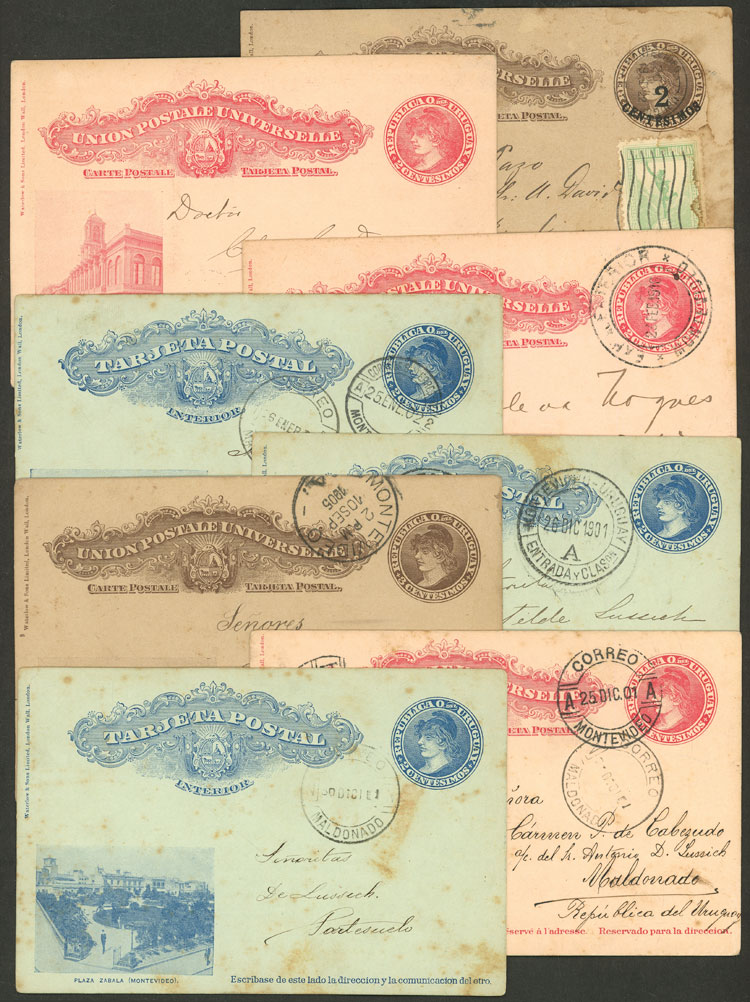 UNIVERSELLE
TARJETA POSTAL.
REPUBLICA O. DEL URUGUAY
2
CENTESIMOS
Pazo
A. David
Waterlow & Sons Limited, London Wall, London.
UNION POSTALE UNIVERSELLE
CARTE POSTALE TARJETA POSTAL.
REPUBLICA O. DEL URUGUAY
2 CENTESIMOS
Doctor
POSTALE UNIVERSELLE
TARJETA POSTAL.
REPUBLICA O. DEL URUGUAY
Nogués
Waterlow & Sons Limited, London Wall, London.
TARJETA POSTAL
INTERIOR
REPUBLICA O. DEL URUGUAY
2 CENTESIMOS
25 ENE. 02
POSTAL
REPUBLICA O. DEL URUGUAY
2 CENTESIMOS
MONTEVIDEO-URUGUAY
26 DIC 1901
A
ENTRADA Y CLASON
de Lussich
Waterlow & Sons Limited, London Wall, London.
UNION POSTALE UNIVERSELLE
CARTE POSTALE TARJETA POSTAL.
REPUBLICA O. DEL URUGUAY
3 CENTESIMOS
MONTEVIDEO
2 PM
10 SEP
1905
Señores
UNIVERSELLE
TARJETA POSTAL.
REPUBLICA O. DEL URUGUAY
2 CENTESIMOS
CORREO
A 25 DIC. 01 A
MONTEVIDEO
CORREO
MALDONADO
Cármen P. de Cabezudo
c/. del Sr. Antonio D. Lussich
Maldonado
República del Uruguay
Réservé à l'adresse. Reservado para la direccion.
Waterlow & Sons Limited, London Wall, London.
TARJETA POSTAL
INTERIOR
REPUBLICA O. DEL URUGUAY
2 CENTESIMOS
MALDONADO
Señoritas
De Lussich.
Portesuelo
PLAZA ZABALA (MONTEVIDEO).
Escríbase de este lado la direccion y la comunicacion del otro.